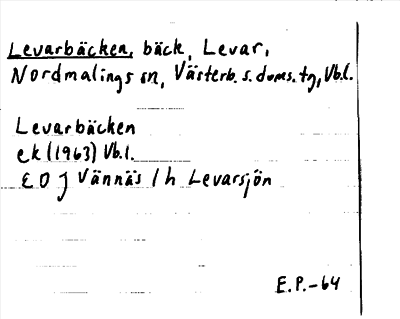 Levarbäcken, bäck, Levar,
Nordmalings sn, Västerb. s. doms. tg, Vb.l.
Levarbäcken
ek (1963) Vb.l.
EOJ Vännäs / h Levarsjön
E.P.-64